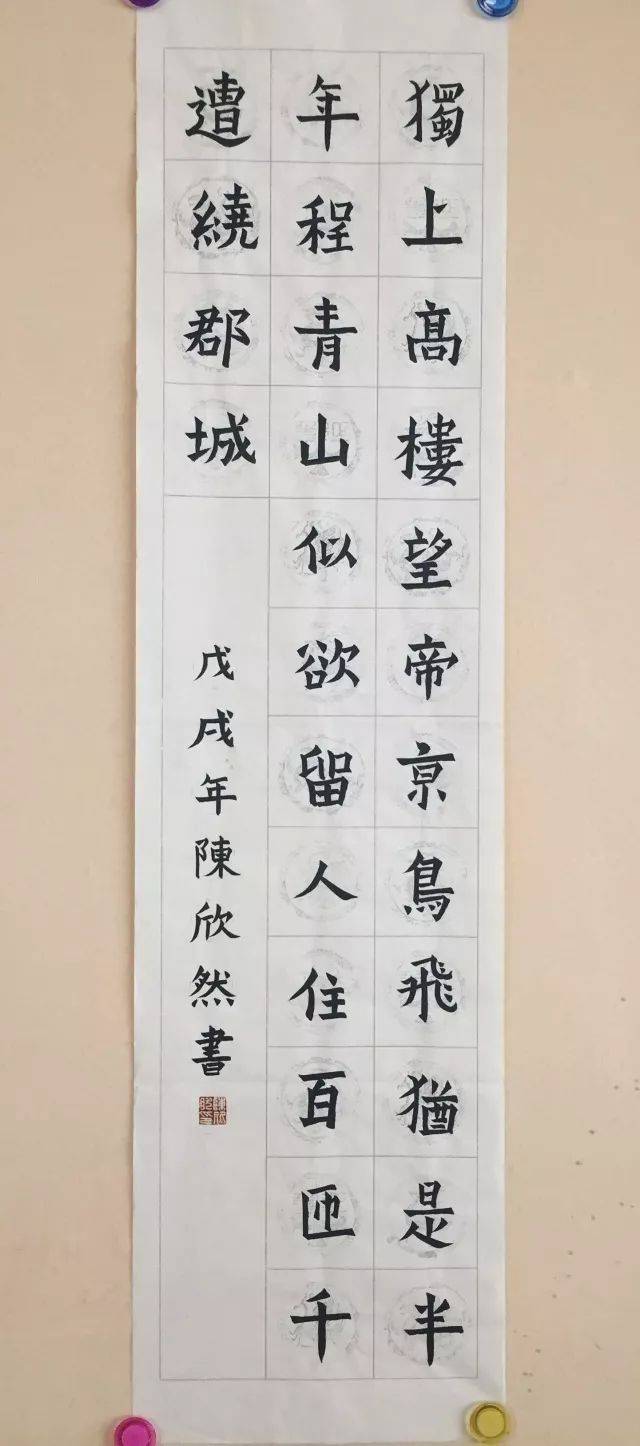 獨上高樓望帝京鳥飛猶是半
年程青山似欲留人住百匝千
遭繞郡城
戊戌年陳欣然書